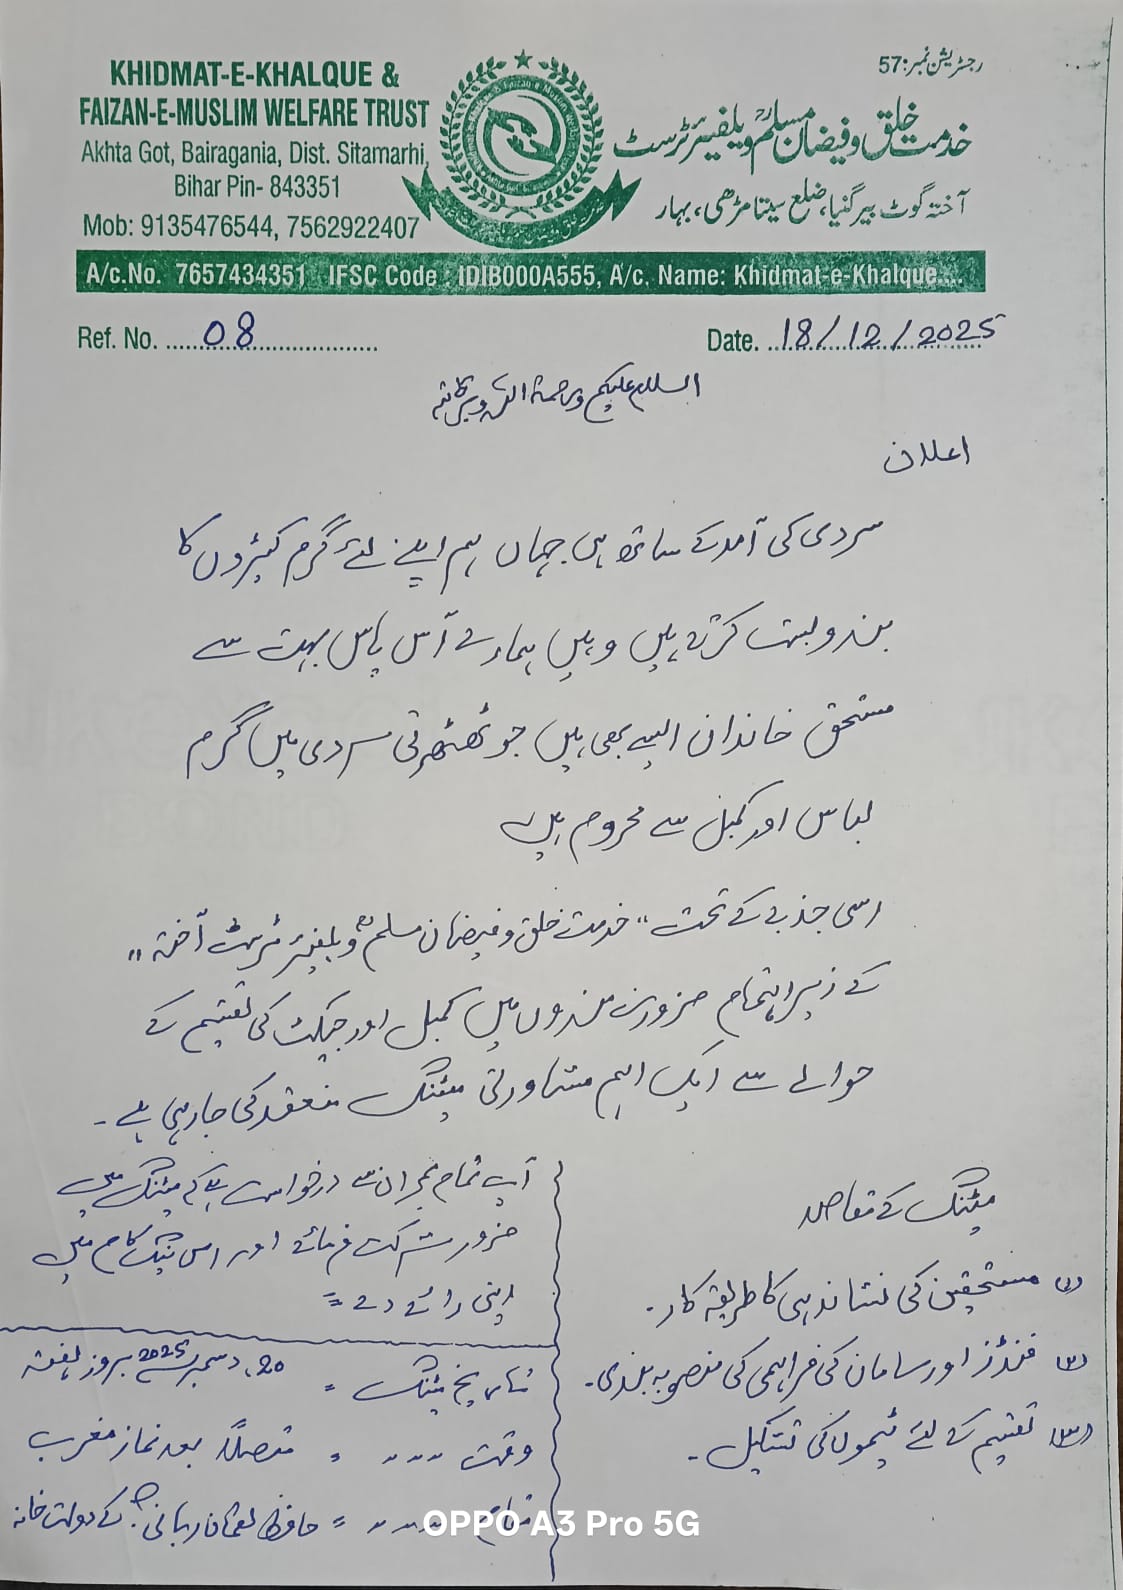 رجسٹریشن نمبر: 57
KHIDMAT-E-KHALQUE &
FAIZAN-E-MUSLIM WELFARE TRUST
Akhta Got, Bairagania, Dist. Sitamarhi,
Bihar Pin- 843351
Mob: 9135476544, 7562922407
خدمت خلق و فیضان مسلمؒ ویلفیئر ٹرسٹ
آختہ گوٹ بیرگنیا، ضلع سیتامڑھی، بہار
A/c.No. 7657434351 IFSC Code : IDIB000A555, A/c. Name: Khidmat-e-Khalque....
Ref. No. ......08..............................
Date. ..18/12/2025
السلام علیکم ورحمۃ اللہ وبرکاتہ
اعلان
سردی کی آمد کے ساتھ ہی جہاں ہم اپنے لئے گرم کپڑوں کا
بندوبست کرتے ہیں وہیں ہمارے آس پاس بہت سے
مستحق خاندان ایسے بھی ہیں جو ٹھٹھرتی سردی میں گرم
لباس اور کمبل سے محروم ہیں
اسی جذبے کے تحت "خدمت خلق و فیضان مسلمؒ ویلفیئر ٹرسٹ آختہ"
کے زیر اہتمام ضرورت مندوں میں کمبل اور جیکٹ کی تقسیم کے
حوالے سے ایک اہم مشاورتی میٹنگ منعقد کی جا رہی ہے۔
میٹنگ کے مقاصد
(۱) مستحقین کی نشاندہی کا طریقہ کار۔
(۲) فنڈز اور سامان کی فراہمی کی منصوبہ بندی۔
(۳) تقسیم کے لئے ٹیموں کی تشکیل۔
آپ تمام ممبران سے درخواست ہے کہ میٹنگ میں
ضرور شرکت فرمائے اور اس نیک کام میں
اپنی رائے دے =
تاریخ میٹنگ = 20، دسمبر 2025ء بروز ہفتہ
وقت 〃〃〃 = متصلاً بعد نماز مغرب
مقام 〃〃〃 = حافظ لقمان ربانی کے دولت خانہ
OPPO A3 Pro 5G